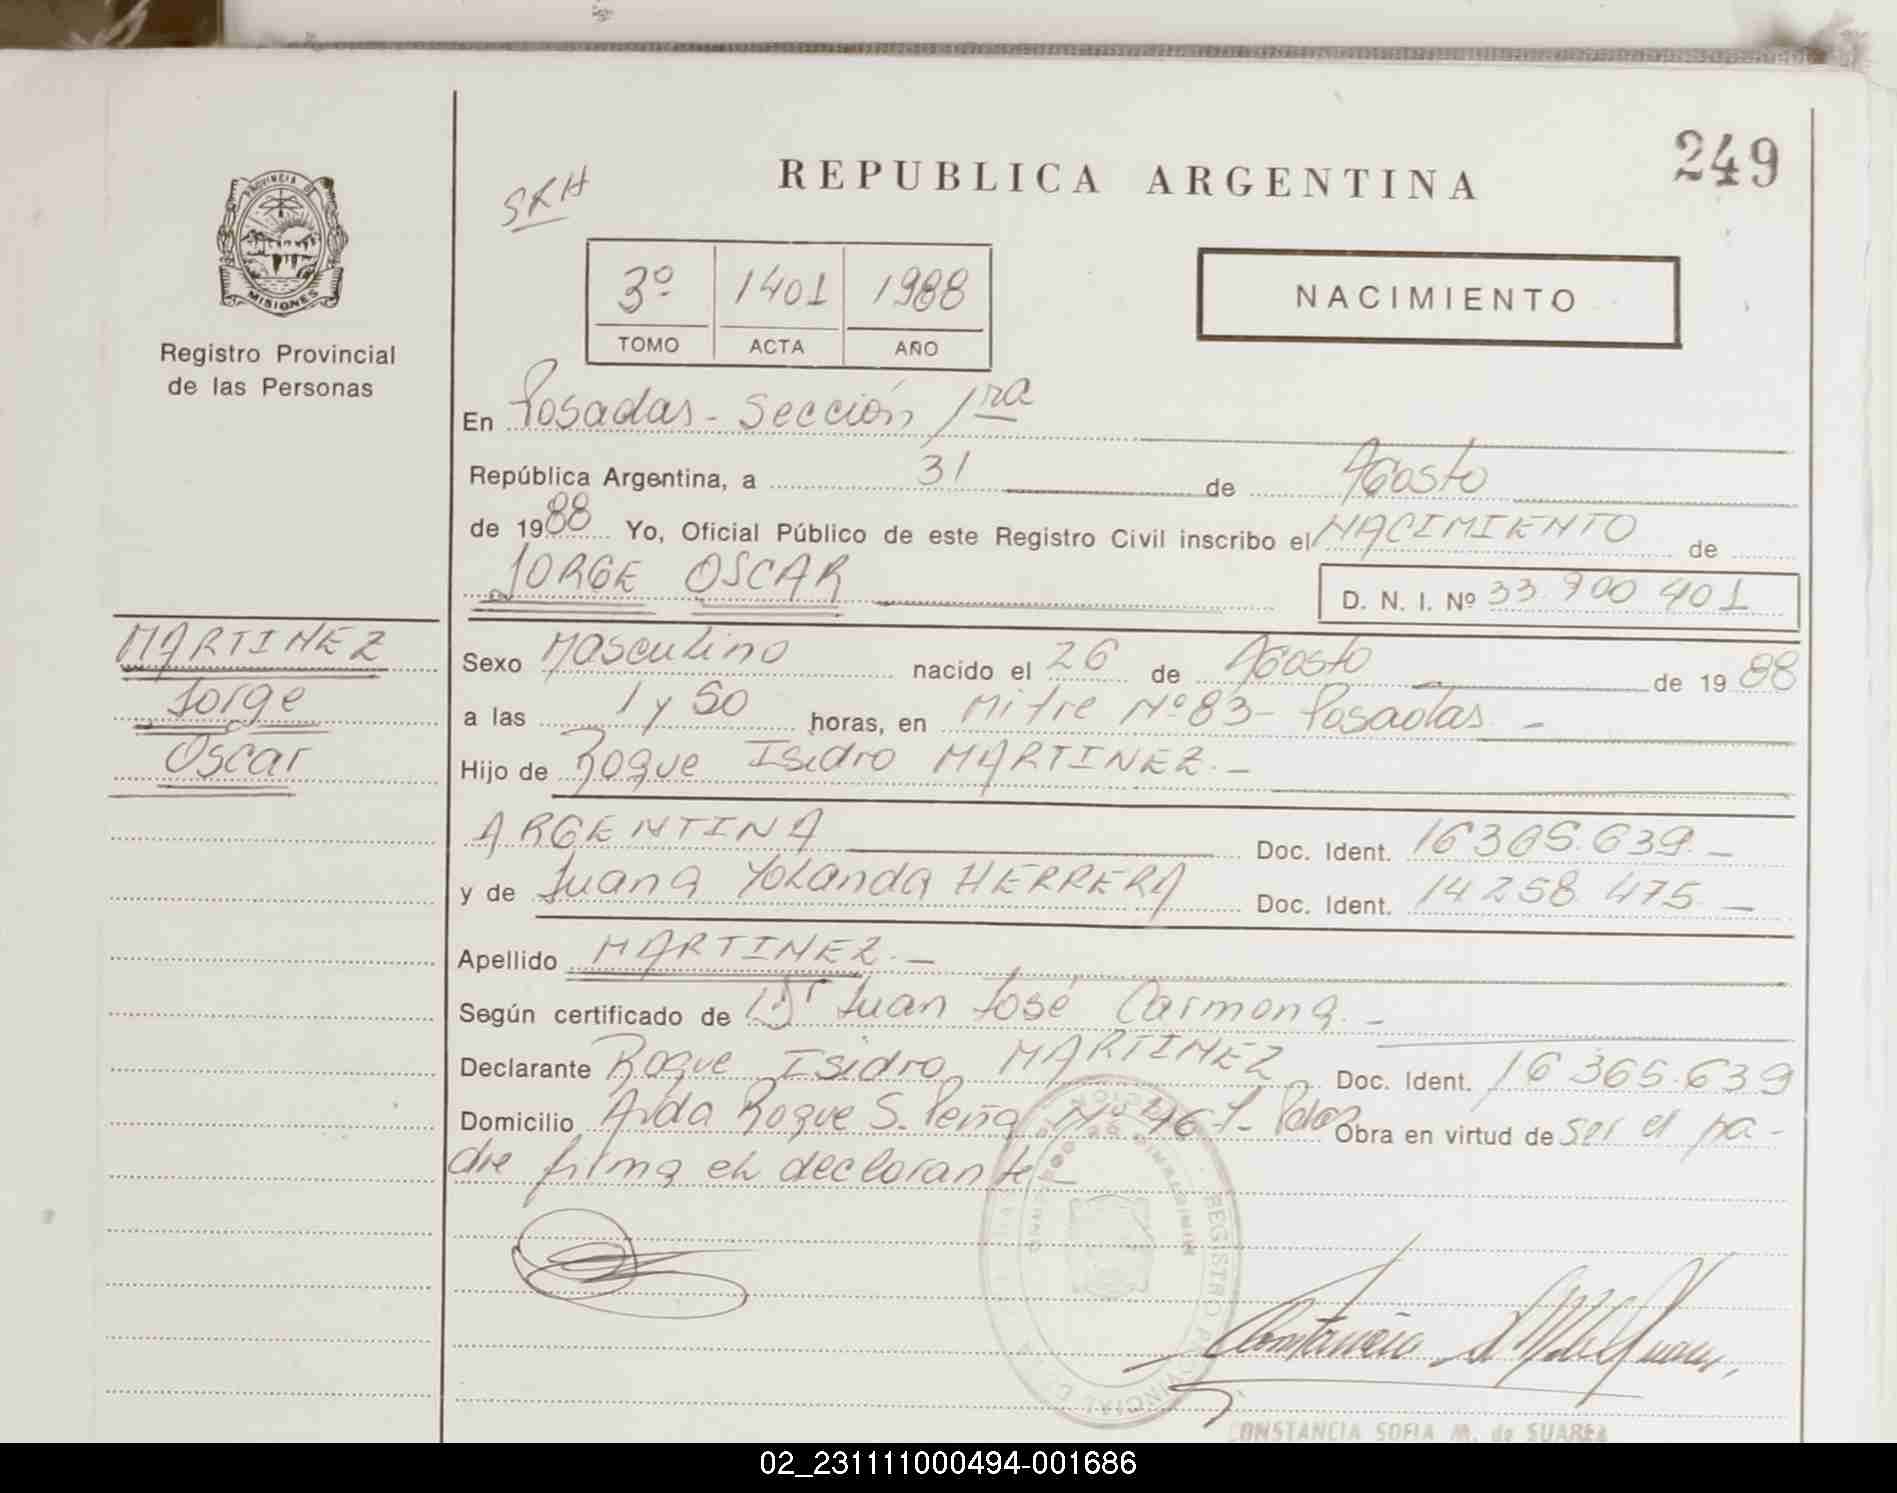 249
REPUBLICA ARGENTINA
SRH
PROVINCIA DE
MISIONES
Registro Provincial
de las Personas
3º 1401 1988
TOMO ACTA AÑO
NACIMIENTO
En Posadas - Sección 1ra
República Argentina, a 31 de Agosto
de 1988 Yo, Oficial Público de este Registro Civil inscribo el NACIMIENTO de
JORGE OSCAR D. N. I. Nº 33 900 401
MARTINEZ
Jorge
Oscar
Sexo Masculino nacido el 26 de Agosto de 1988
a las 1 y 50 horas, en Mitre Nº 83 - Posadas -
Hijo de Roque Isidro MARTINEZ. -
ARGENTINA Doc. Ident. 16 365.639 -
y de Juana Yolanda HERRERA Doc. Ident. 14 258 475 -
Apellido MARTINEZ. -
Según certificado de Dr Juan José Carmona. -
Declarante Roque Isidro MARTINEZ Doc. Ident. 16 365.639
Domicilio Avda Roque S. Peña Nº - Pdas Obra en virtud de ser el pa-
dre firma el declarante -
REGISTRO PROVINCIAL DE
CONSTANCIA SOFIA M. de SUAREZ
02_231111000494-001686